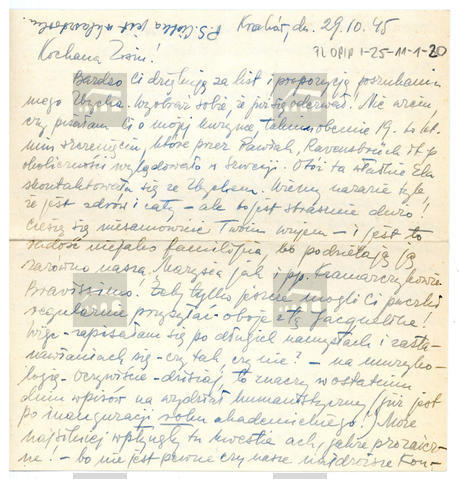 P.S. Ciotka jest w
Kraków, dn. 29.10.45
PL OPiP 1-25-11-1-20
Kochana Zosiu!
Bardzo Ci dziękuję za list i propozycję poszukania
mego Zbycha. Wyobraź sobie, że już się odezwał! Nie wiem
czy pisałam Ci o mojej kuzynce, takim obecnie 19-to let-
nim szczenięciu, które przez Pawiak, Ravensbrück itp
okoliczności wylądowało w Szwecji. Otóż ta właśnie Ela
skontaktowała się ze Zbychem. Wiemy narazie tyle
że jest zdrów i cały - ale to jest strasznie dużo!
Cieszę się niesamowicie Twoim wujem - i jest to
radość niejako familijna, bo podzielają ją
zarówno nasza Marysia jak i pp.
Bravissimo! Żeby tylko jeszcze mogli Ci paczki
regularnie przysyłać - oboje z tą Jacqueline!
Więc - zapisałam się po długich namysłach i zasta-
nawianiach się - czy tak czy nie? - na muzyko-
logię. Oczywiście - dzisiaj, to znaczy w ostatnim
dniu wpisów na wydział humanistyczny (już jest
po inauguracji roku akademickiego!) Może
najsilniej wpłynęły tu kwestie ach, jakże prozaicz-
ne! - bo nie jest pewne czy nasze najdroższe Kon-